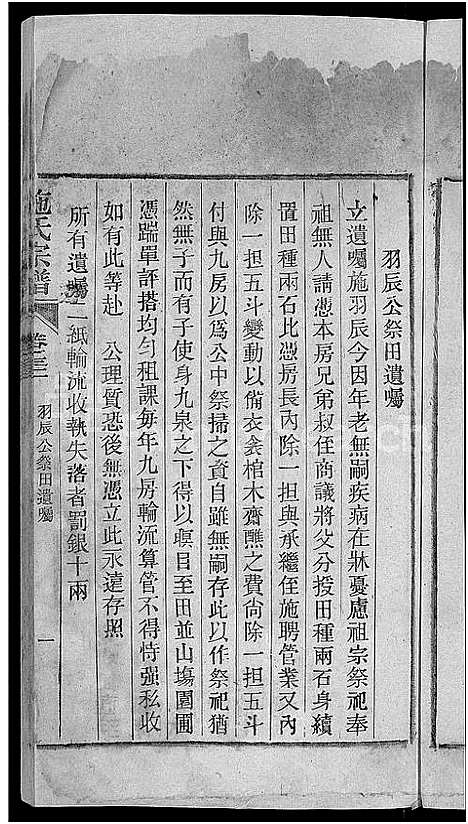 羽辰公祭田遺囑
立遺囑施羽辰今因年老無嗣疾病在牀憂慮祖宗祭祀奉
祖無人請憑本房兄弟叔侄商議將父分授田種兩石身續
置田種兩石比憑房長內除一担與承繼侄施聘管業又內
除一担五斗變動以備衣衾棺木齋醮之費尙除一担五斗
付與九房以爲公中祭掃之資自雖無嗣存此以作祭祀猶
然無子而有子使身九泉之下得以瞑目至田並山塲園圃
憑踹單評搭均勻租課每年九房輪流算管不得恃强私收
如有此等赴　公理質恐後無憑立此永遠存照
所有遺囑一紙輪流收執失落者罰銀十兩
施氏宗譜
卷三
羽辰公祭田遺囑
一